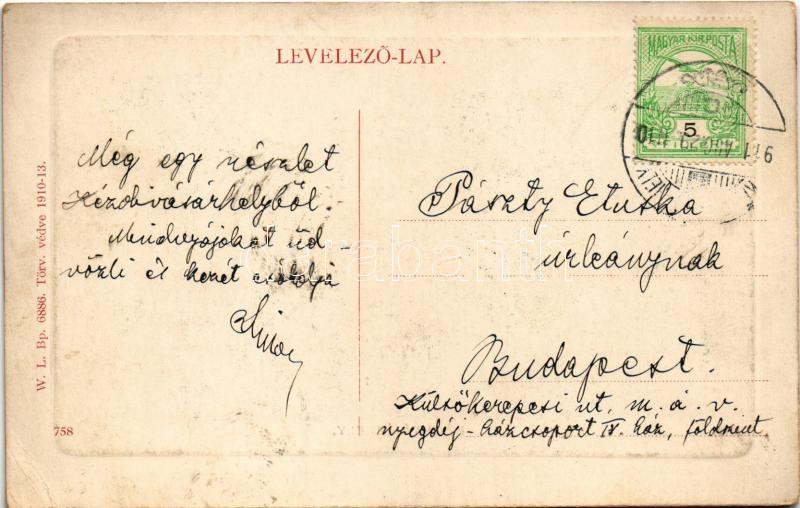 LEVELEZŐ-LAP.
MAGYAR KIR. POSTA
5
Még egy részlet
Kézdivásárhelyből.
Mindnyájokat üd-
vözli és kezét csókolja
Pászty Etuska
úrleánynak
Budapest.
Külsőkerepesi út. m. á. v.
nyugdíj-házcsoport IV. ház, földszint.
W. L. Bp. 6886. Törv. védve 1910-13.
758
darabanth